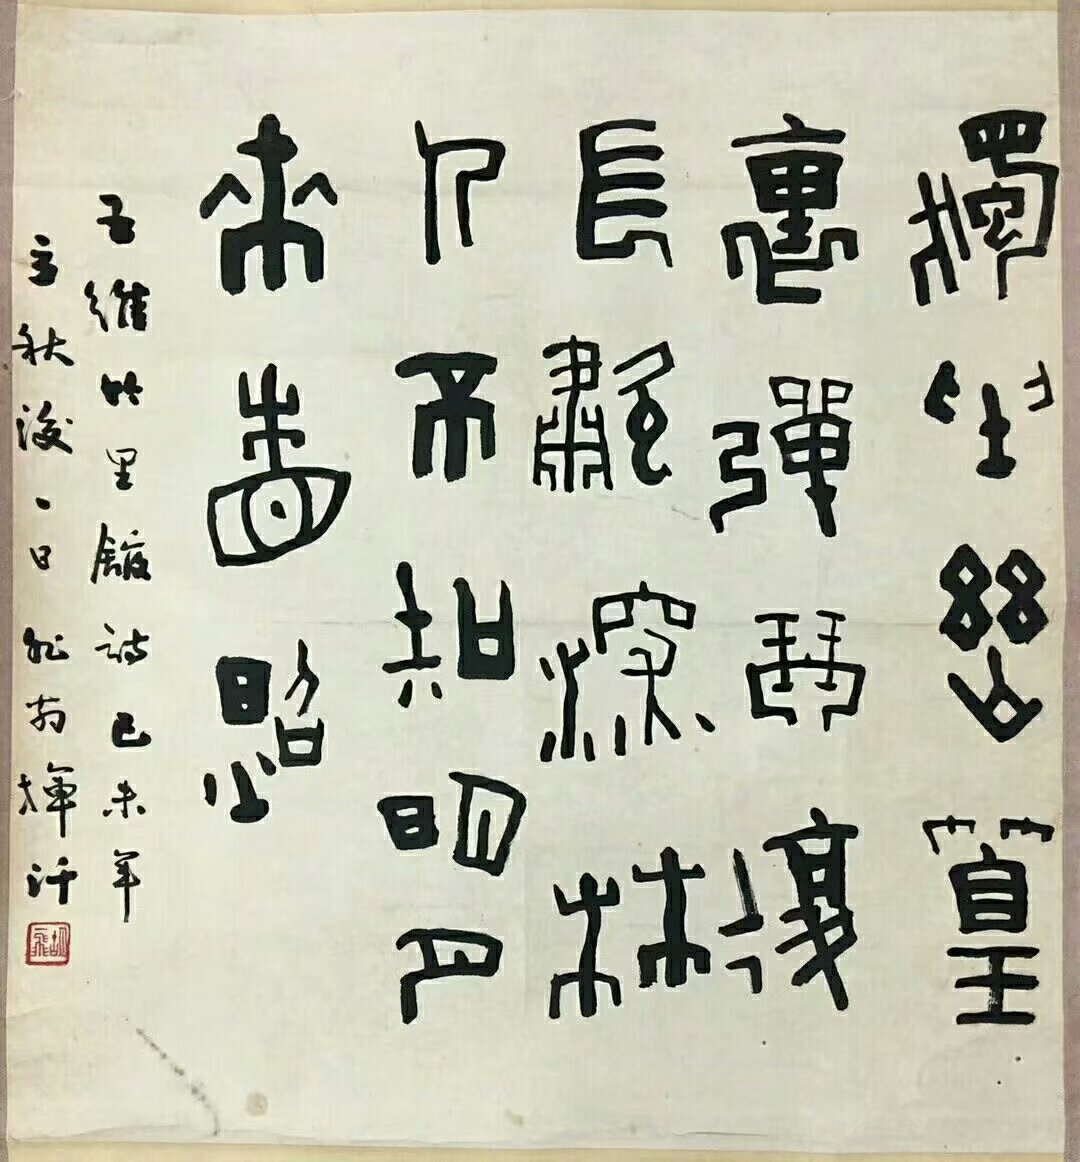 獨坐幽篁
裏彈琴復
長嘯深林
人不知明月
來相照
王維竹里館詩己未年
立秋後一日